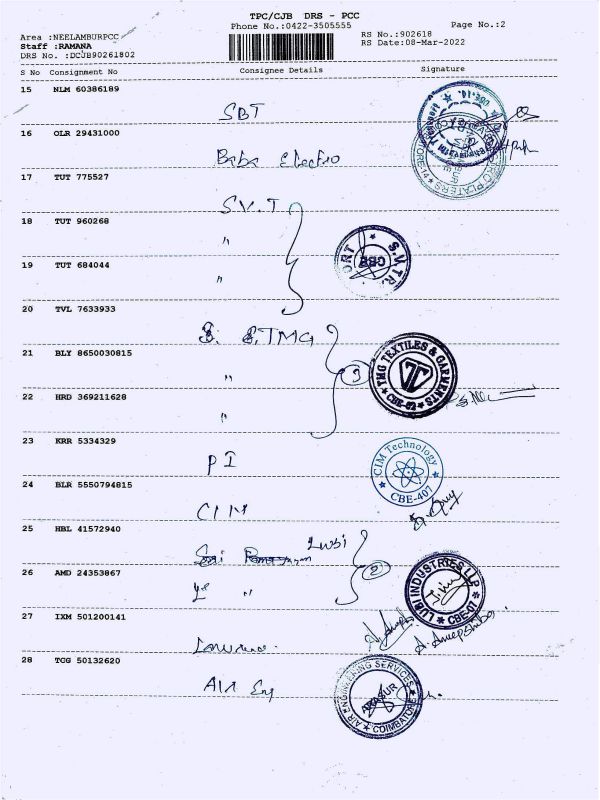 TPC/CJB DRS - PCC
Phone No.:0422-3505555
Page No.:2
Area :NEELAMBURPCC
RS No.:902618
Staff :RAMANA
RS Date:08-Mar-2022
DRS No. :DCJB90261802
S No Consignment No Consignee Details Signature
15 NLM 60386189
SBT
16 OLR 29431000
Baba Electro
17 TUT 775527
S.V.T
18 TUT 960268
"
19 TUT 684044
"
S.V.TR
CBE
20 TVL 7633933
S. TMG
21 BLY 8650030815
"
3
TMG TEXTILES & GARMENTS
CBE-62
22 HRD 369211628
"
23 KRR 5334329
PI
CIM Technology
CBE-407
24 BLR 5550794815
CIM
25 HBL 41572940
Lubi
26 AMD 24353867
"
2
LUBI INDUSTRIES LLP
CBE-07
27 IXM 501200141
Lawrence.
28 TCG 50132620
Air Eng
AIR ENGINEERING SERVICES
COIMBATORE